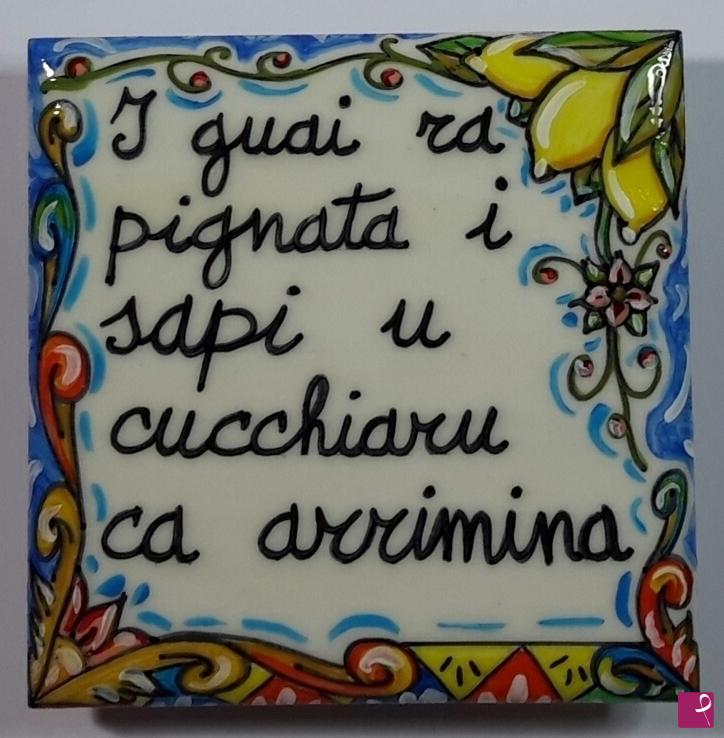 I guai ra
pignata i
sapi u
cucchiaru
ca arrimina